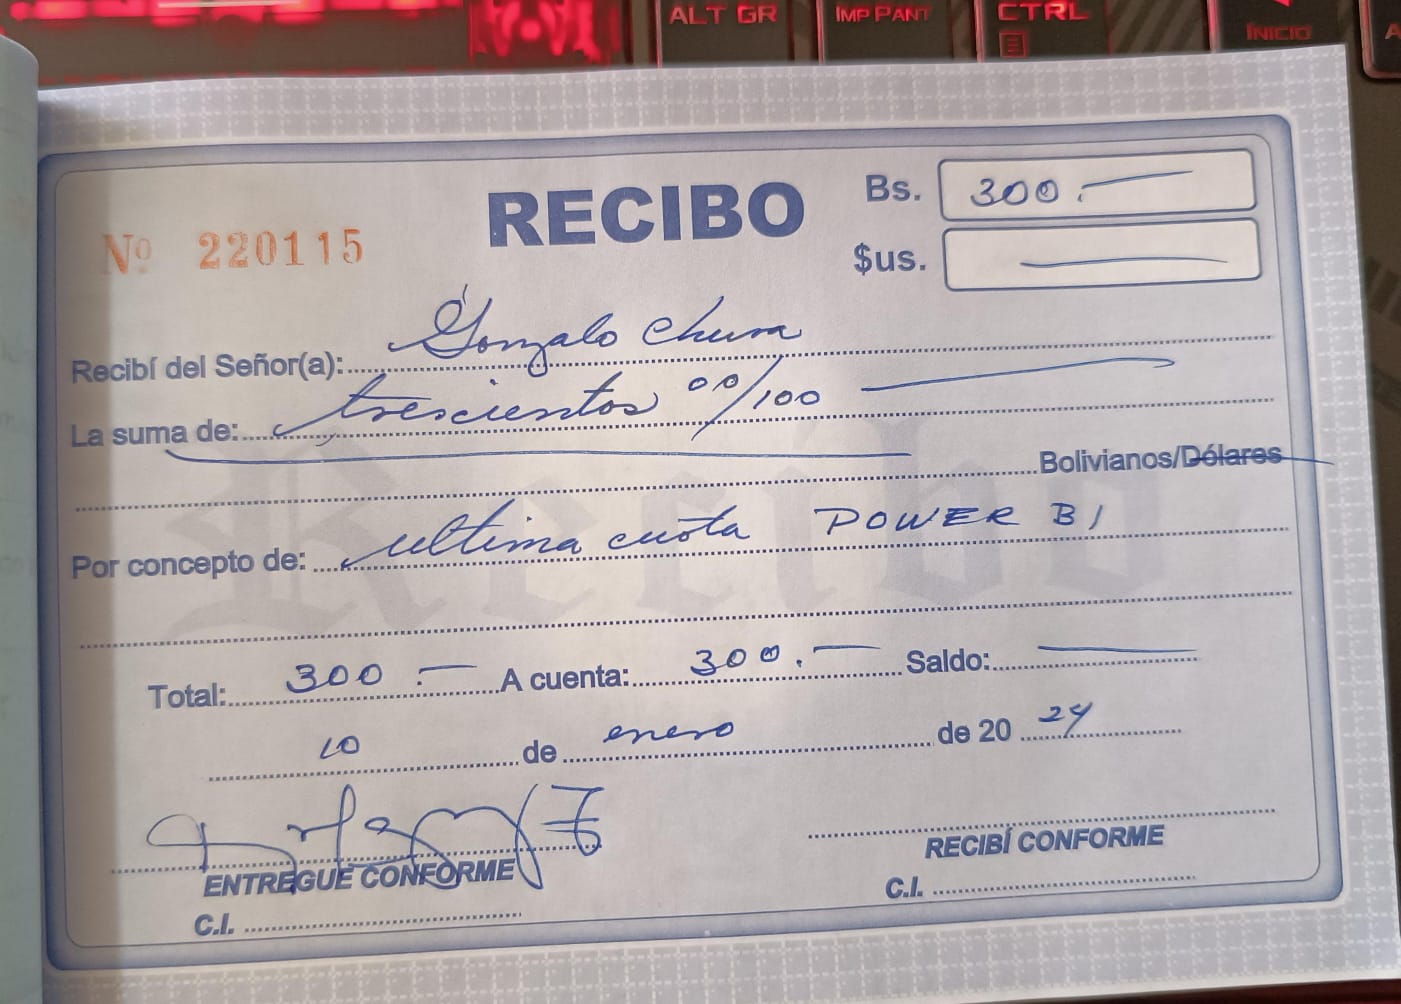 ALT GR IMP PANT CTRL INICIO
RECIBO
Nº 220115
Bs. 300.-
$us.
Recibí del Señor(a): Gonzalo Chura
La suma de: trescientos 00/100
Bolivianos/Dólares
Por concepto de: ultima cuota POWER BI
Total: 300.- A cuenta: 300.- Saldo:
10 de enero de 20 24
ENTREGUE CONFORME
C.I.
RECIBÍ CONFORME
C.I.